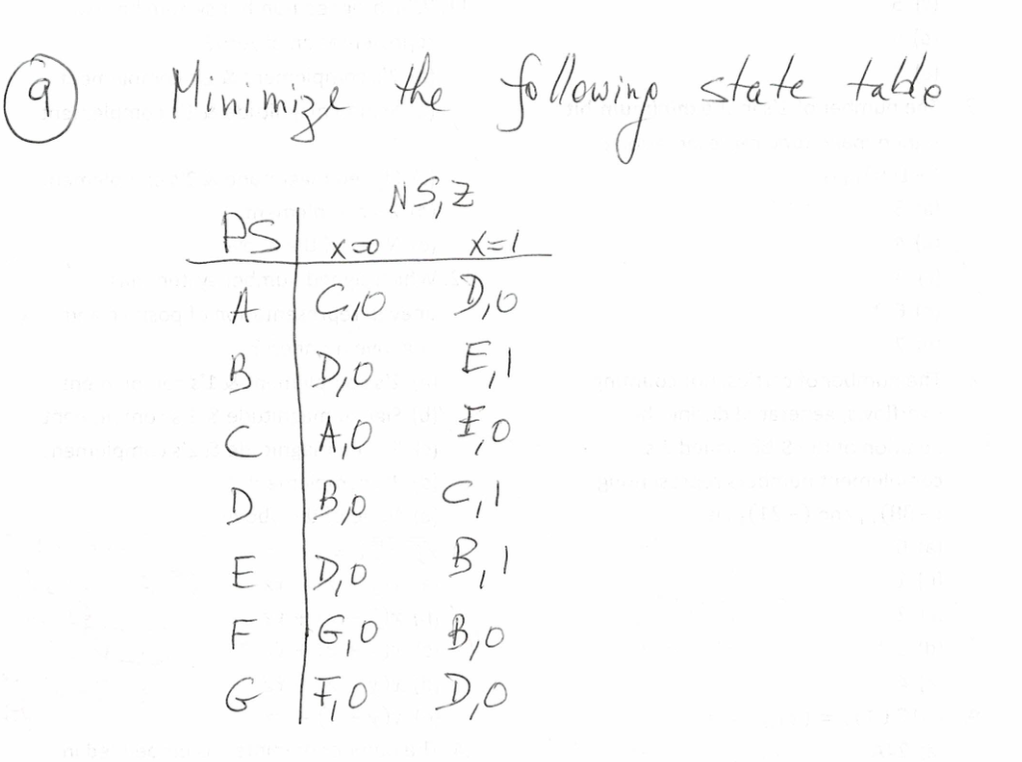 9 Minimize the following state table
NS,Z
PS x=0 x=1
A C,0 D,0
B D,0 E,1
C A,0 E,0
D B,0 C,1
E D,0 B,1
F G,0 B,0
G F,0 D,0